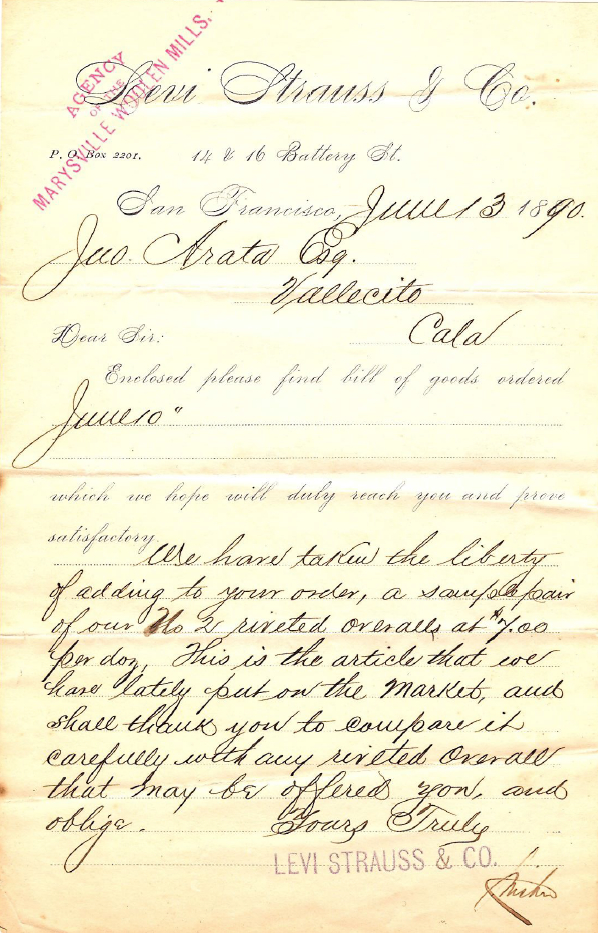 AGENCY
OF THE
MARYSVILLE WOOLEN MILLS.
Levi Strauss & Co.
P. O. Box 2201. 14 & 16 Battery St.
San Francisco, June 13 1890.
Jno. Arata Esq.
Vallecito
Dear Sir: Cala
Enclosed please find bill of goods ordered
June 10"
which we hope will duly reach you and prove
satisfactory.
We have taken the liberty
of adding to your order, a sample pair
of our No 2 riveted overalls at $7.00
per doz, This is the article that we
have lately put on the market, and
shall thank you to compare it
carefully with any riveted Overall
that may be offered you, and
oblige. Yours Truly
LEVI STRAUSS & CO.